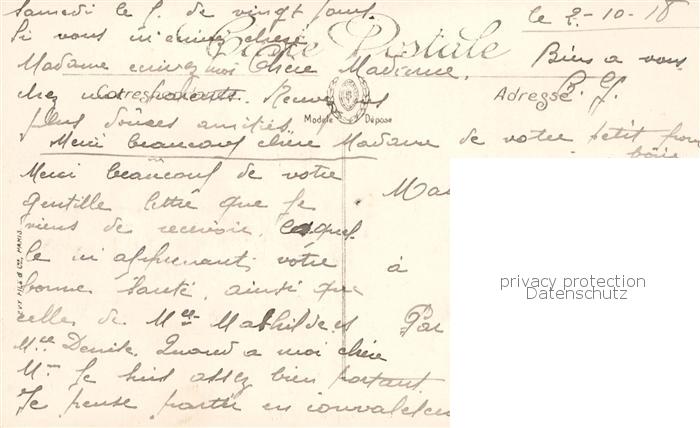 samedi le 5. de vingt jours. le 2-10-18
Si vous m'écrivez chère Carte Postale Biens a vous
Madame écrivez moi Chère Madame, B. G.
chez mes parents. Recevez Correspondance Adresse
plus douces amitiés Modèle Déposé
Merci beaucoup chère Madame de votre petit
Merci beaucoup de votre
gentille lettre que je Ma
viens de recevoir. Laquel
le m'apprenant votre à
bonne santé, ainsi que
celles de Melle Mathilde et Par
Melle Denise. Quand a moi chère
Mme je suis assez bien portant.
Je pense partir en convalescen
LEVY FILS & Cie, PARIS
privacy protection
Datenschutz